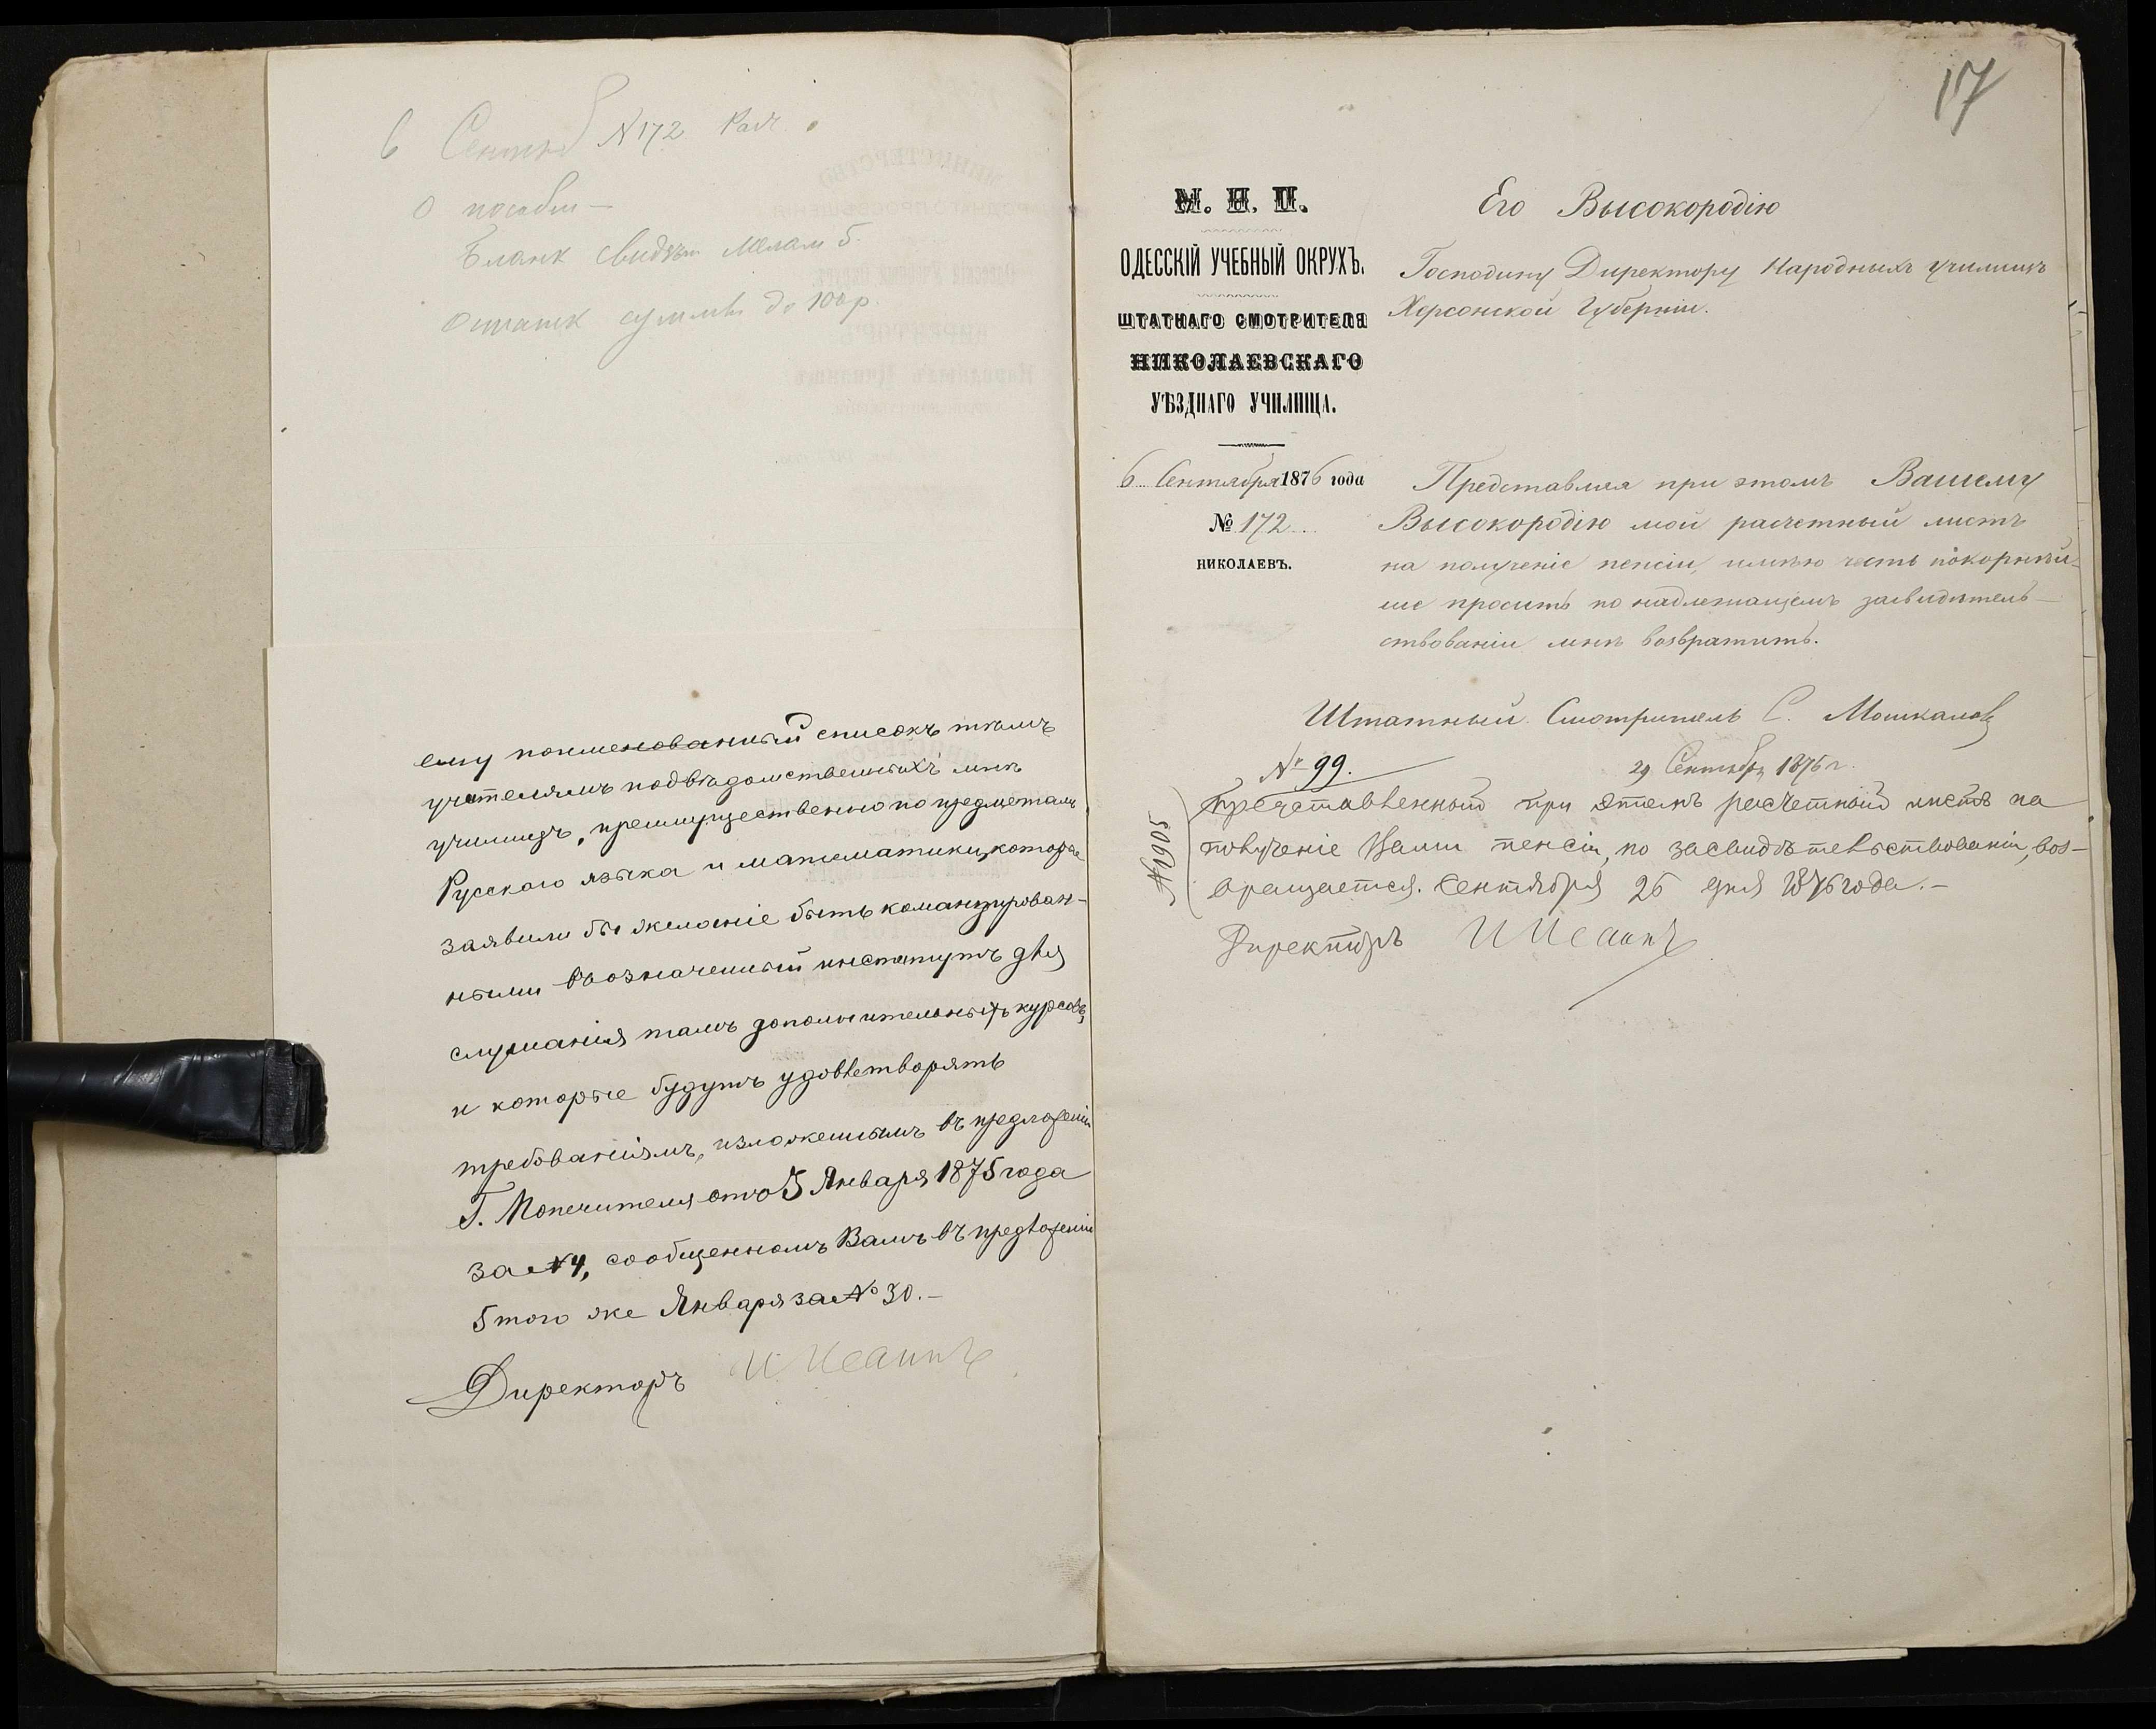 6 Сентяб №172 Рап.
О пособи—
Бланк свидѣт
Остатк суммы до 100 р.
ему поименованный списокъ тѣмъ
учителямъ подвѣдомственныхъ мнѣ
училищъ, преимущественно по предметамъ
Русскаго языка и математики, которые
заявили бы желаніе быть командирован-
ными въ означенный институтъ для
слушанія тамъ дополнительныхъ курсовъ,
и которые будутъ удовлетворять
требованіямъ, изложеннымъ въ предложеніи
Г. Попечителя отъ 5 Января 1875 года
за №4, сообщенномъ Вамъ въ предложеніи
5 того же Января за № 30.—
Директоръ
17
М. Н. П.
ОДЕССКІЙ УЧЕБНЫЙ ОКРУХЪ.
ШТАТНАГО СМОТРИТЕЛЯ
НИКОЛАЕВСКАГО
УѢЗДНАГО УЧИЛИЩА.
6 Сентября 1876 года
№ 172
НИКОЛАЕВЪ.
Его Высокородію
Господину Директору Народныхъ училищъ
Херсонской Губерніи.
Представляя при этомъ Вашему
Высокородію мой расчетный листъ
на полученіе пенсіи, имѣю честь покорнѣй-
ше просить по надлежащемъ засвидѣтель-
ствованіи мнѣ возвратить.
Штатный Смотритель С. Мошкаловъ
№ 99.
29 Сентября 1876 г.
№905
Представленный при этомъ расчетный листъ на
полученіе Вами пенсіи, по засвидѣтельствованіи, воз-
вращается. Сентября 26 дня 1876 года.—
Директоръ